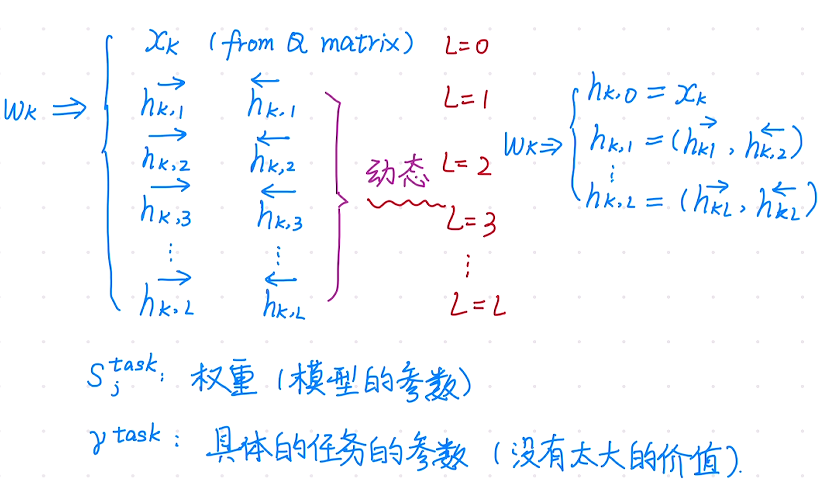 x_K (from Q matrix) L=0
w_K ⇒ { →h_{K,1} ←h_{K,1} L=1
→h_{K,2} ←h_{K,2} L=2
→h_{K,3} ←h_{K,3} L=3
⋮ ⋮ ⋮
→h_{K,L} ←h_{K,L} L=L
} 动态
w_K ⇒ { h_{K,0} = x_K
h_{K,1} = (→h_{K1}, ←h_{K,2})
⋮
h_{K,L} = (→h_{KL}, ←h_{KL})
S_j^{task}: 权重 (模型的参数)
γ^{task}: 具体的任务的参数 (没有太大的价值).